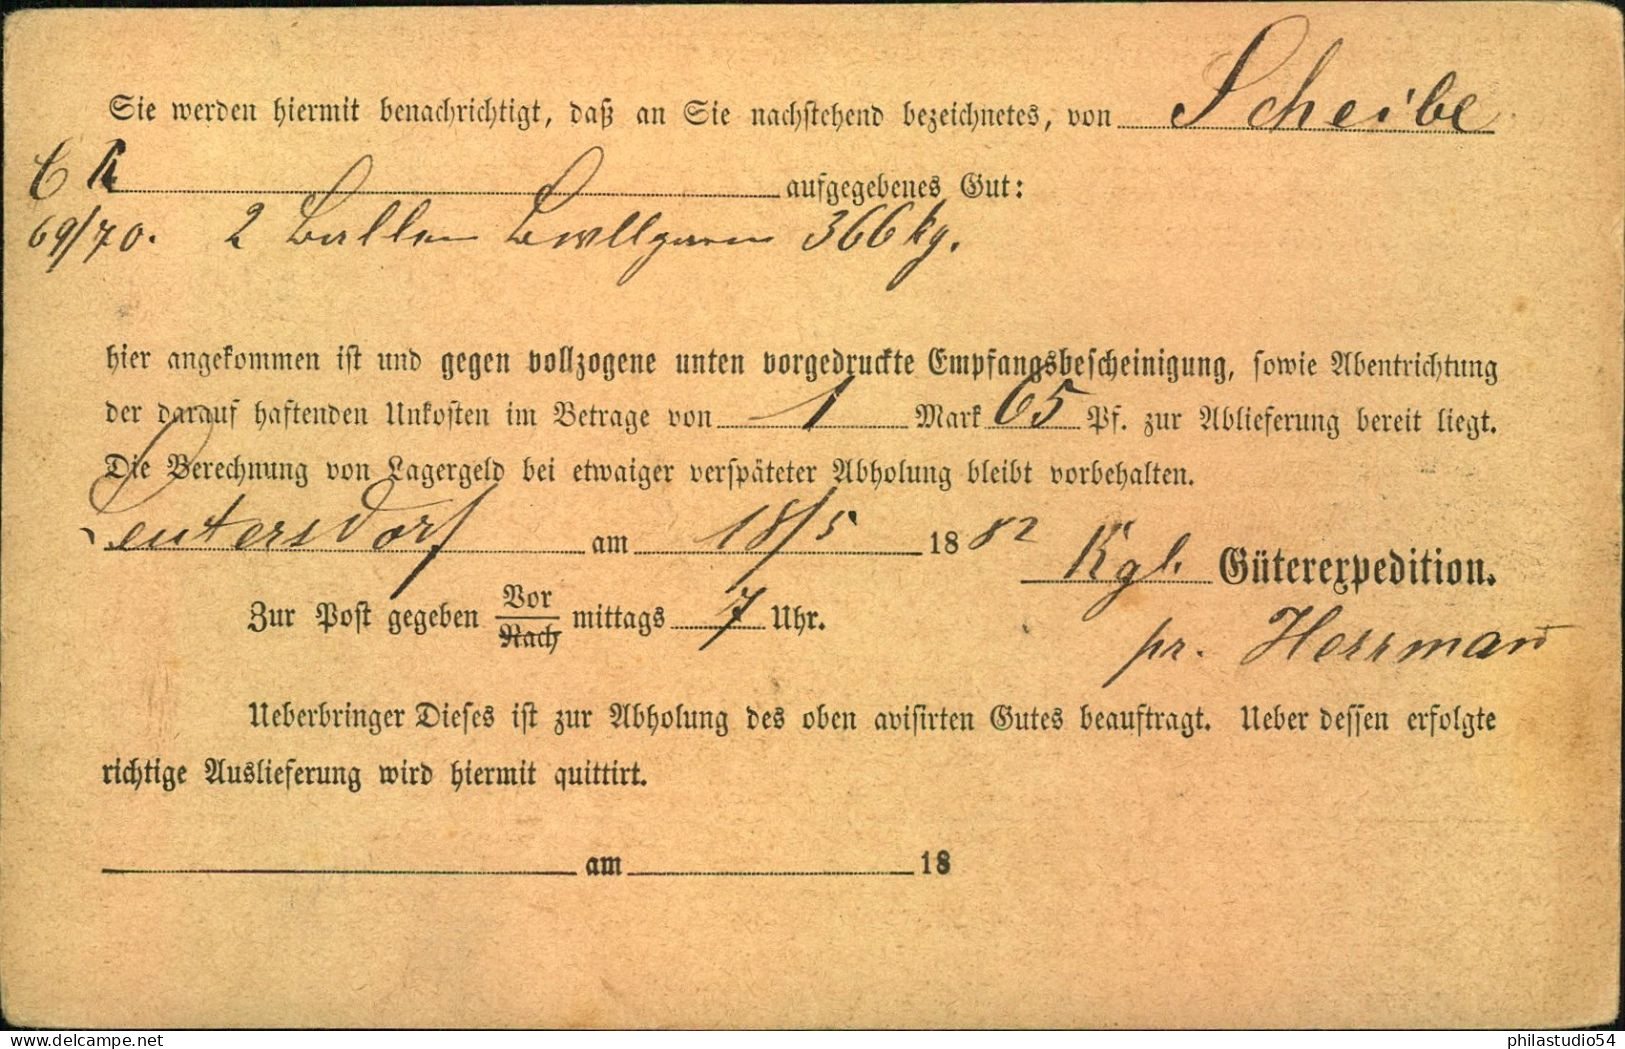 Sie werden hiermit benachrichtigt, daß an Sie nachstehend bezeichnetes, von Scheibe
C R aufgegebenes Gut:
69/70. 2 Ballen Bwllgarn 366 kg.
hier angekommen ist und gegen vollzogene unten vorgedruckte Empfangsbescheinigung, sowie Abentrichtung
der darauf haftenden Unkosten im Betrage von 1 Mark 65 Pf. zur Ablieferung bereit liegt.
Die Berechnung von Lagergeld bei etwaiger verspäteter Abholung bleibt vorbehalten.
Leutersdorf am 18/5 1882 Kgl. Güterexpedition.
Zur Post gegeben Vor/Nach mittags 7 Uhr.
pr. Herrman
Ueberbringer Dieses ist zur Abholung des oben avisirten Gutes beauftragt. Ueber dessen erfolgte
richtige Auslieferung wird hiermit quittirt.
am 18
www.delcampe.net
philastudio54